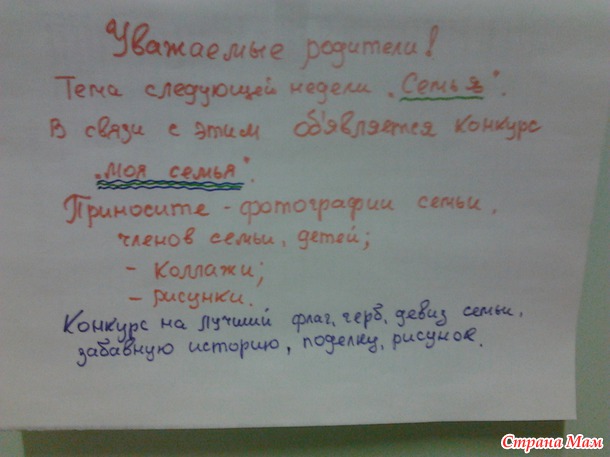 Уважаемые родители!
Тема следующей недели „Семья".
В связи с этим об'является конкурс
„моя семья".
Приносите - фотографии семьи,
членов семьи, детей;
- коллажи;
- рисунки.
Конкурс на лучший флаг, герб, девиз семьи,
забавную историю, поделку, рисунок.
Страна Мам